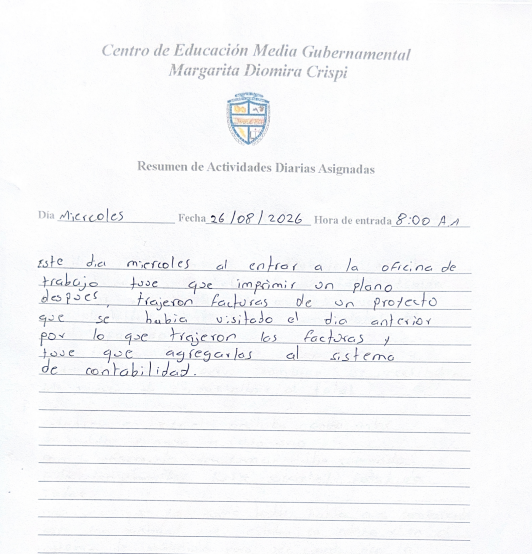 Centro de Educación Media Gubernamental
Margarita Diomira Crispi
Resumen de Actividades Diarias Asignadas
Día Miercoles Fecha 26/08/2026 Hora de entrada 8:00 AM
Este dia miercoles al entrar a la oficina de
trabajo tuve que imprimir un plano
despues, trajeron facturas de un protecto
que se habia visitado el dia anterior
por lo que trajeron las facturas y
tuve que agregarlas al sistema
de contabilidad.